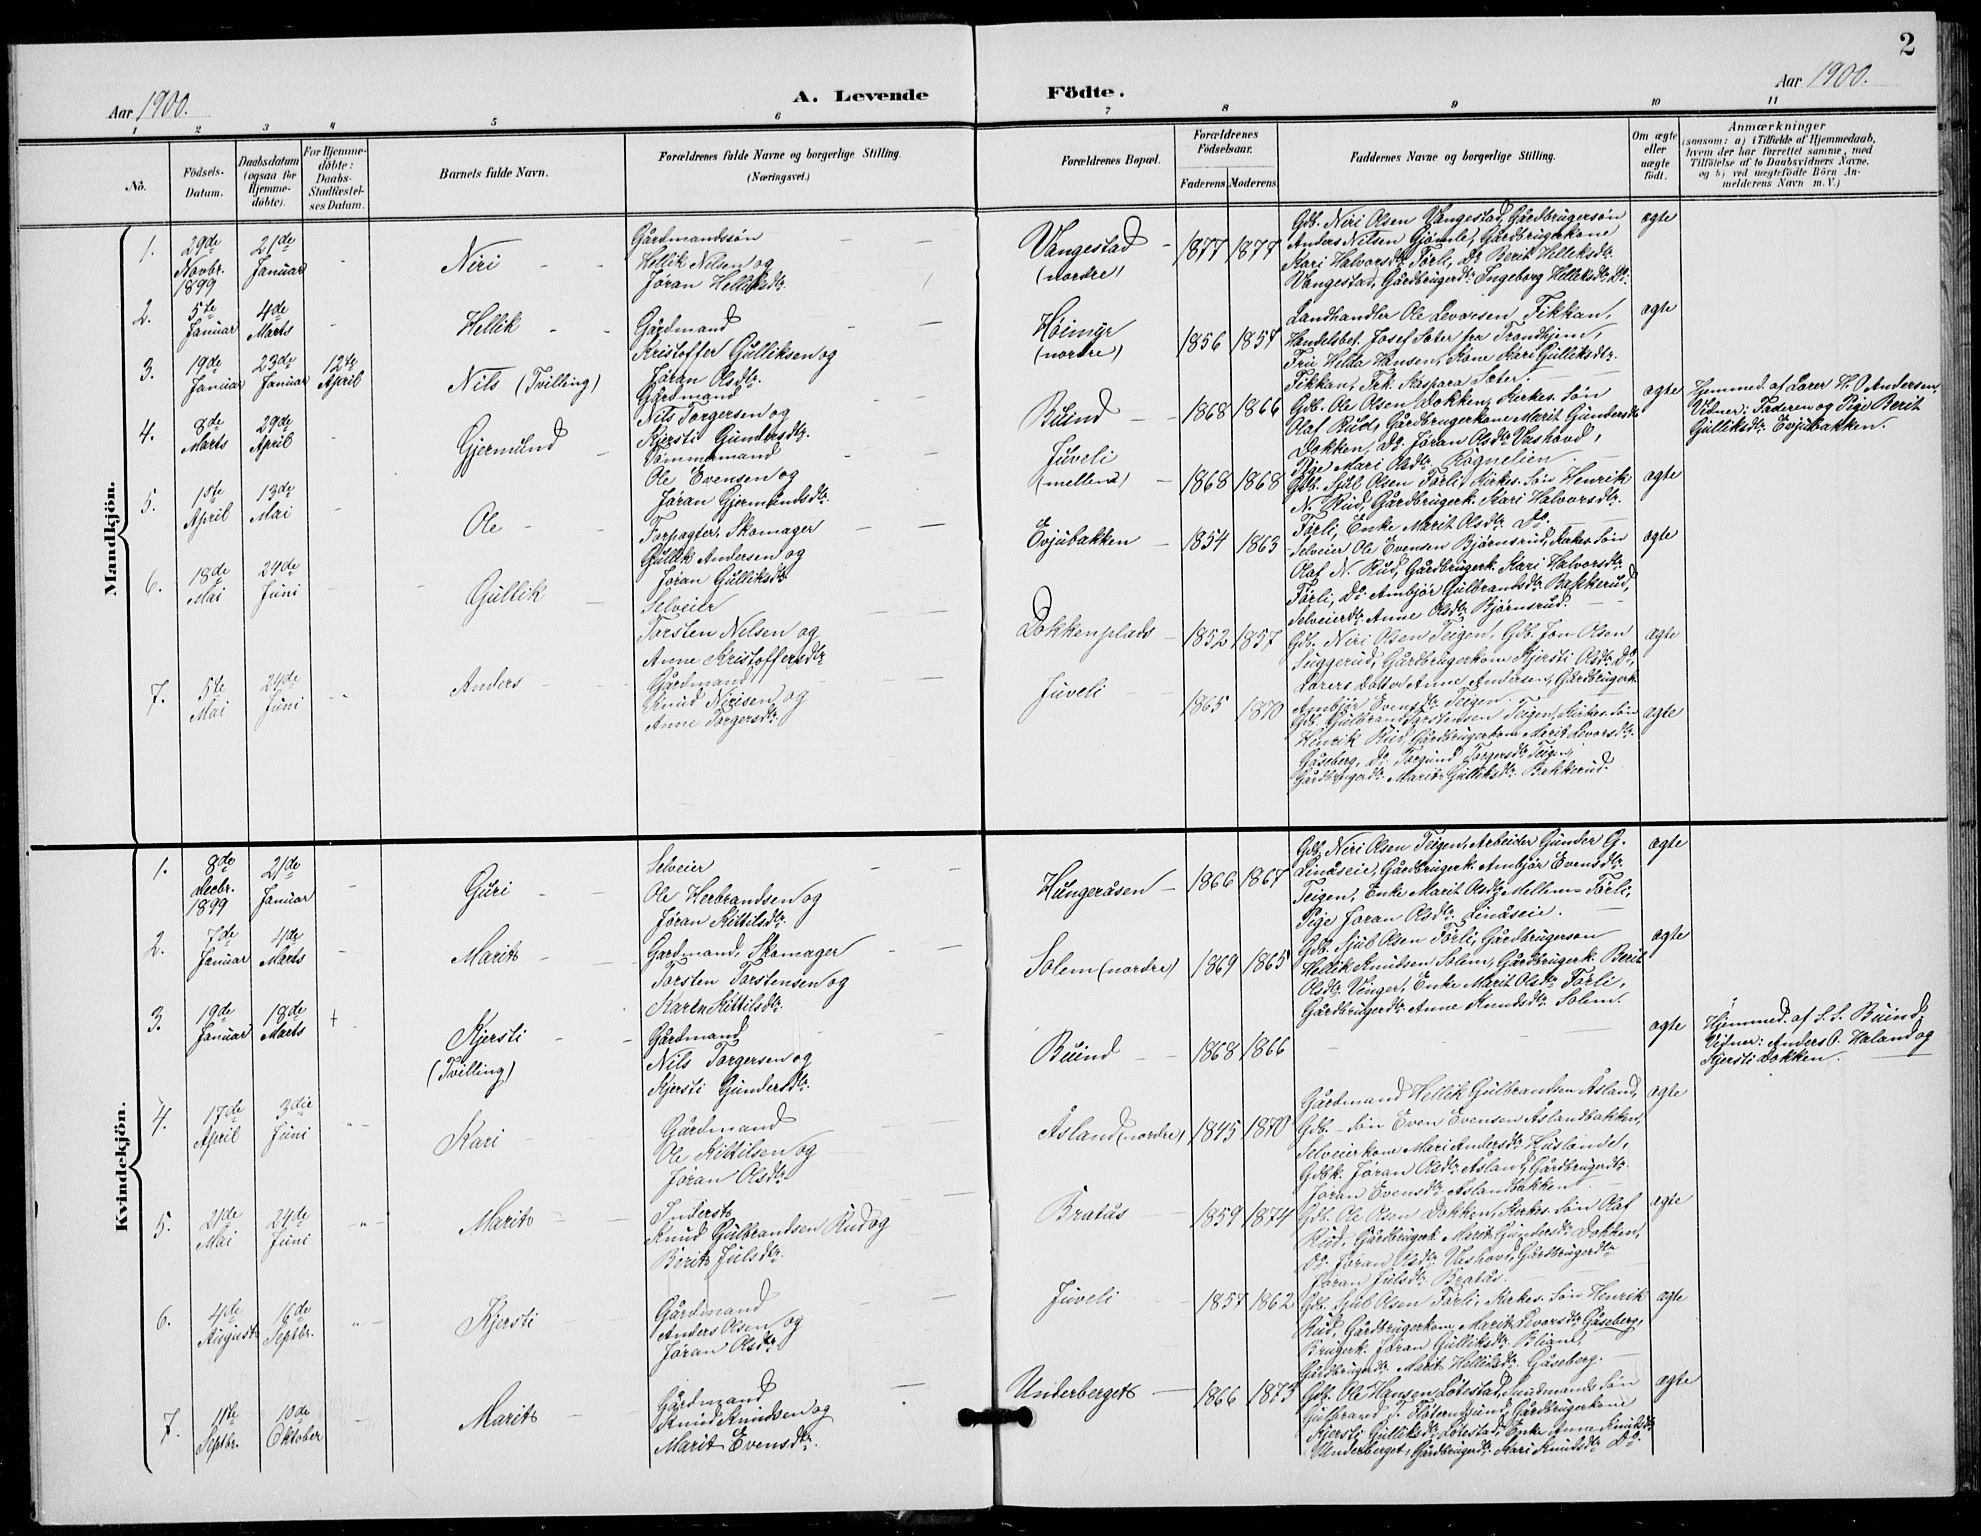 2
Aar 1900.
A. Levende Födte.
Aar 1900.
1 2 3 4 5 6 7 8 9 10 11
No.
Födsels-
Datum.
Daabsdatum
(ogsaa for
Hjemme-
döbte).
For Hjemme-
döbte:
Daabs-
Stadfæstel-
ses Datum.
Barnets fulde Navn.
Forældrenes fulde Navne og borgerlige Stilling.
(Næringsvei.)
Forældrenes Bopæl.
Forældrenes
Födselsaar.
Faderens Moderens
Faddernes Navne og borgerlige Stilling.
Om ægte
eller
uægte
födt.
Anmærkninger
(saasom: a) i Tilfælde af Hjemmedaab,
hvem der har forrettet samme, med
Tilföielse af to Daabsvidners Navne.
og b) ved uægtefödte Börn An-
melderens Navn m. V.)
Mandkjön.
1.
29de
Novbr.
1899
21de
Januar
Niri
Gårdmandssön
Hellik Nilsen og
Jøran Helliksdtr.
Vangestad
(nordre)
1877 1877
Gdb. Niri Olsen Vangestad, Gårdbrugersøn
Anders Nilsen Gjømle, Gårdbrugerkone
Kari Halvorsdtr. Førli, Do Berit Helleksdtr.
Vangestad, Gårdbrugerd. Ingeborg Helleksdtr. Do.
ægte
2.
5te
Januar
4de
Marts
Hellik
Gårdmand
Kristoffer Gulliksen og
Jøran Olsdtr.
Høimyr
(nordre)
1856 1857
Landhandler Ole Levorsen Fikkan,
Handelsbet. Josef Sater fra Trondhjem,
Fru Helda Hansen, Kone Kari Gulliksdtr.
Fikkan, Frk. Kaspara Sæter.
ægte
3.
19de
Januar
23de
Januar
12te
April
Nils (Tvilling)
Gårdmand
Nils Torgersen og
Kjersti Gundersdtr.
Buind
1868 1866
Gdb. Ole Olsen Dokken, Kirkes. Søn
Olaf Rud, Gårdbrugerkone Marit Gundersdtr.
Dokken, Do. Jøran Olsdtr. Vashovd,
Pige Mari Olsdtr. Rognelien.
ægte
Hjemmed. af Lærer H. O Andersen,
Vidner: Faderen og Pige Berit
Gulliksdtr. Evjubakken.
4.
8de
Marts
29de
April
Gjermund
Tømmermand
Ole Evensen og
Jøran Gjermundsdtr.
Juveli
(mellem)
1868 1868
Gdb. Sjul Olsen Førli, Kirkes. Søn Henrik
N. Rud, Gårdbrugerk. Kari Halvorsdtr.
Førli, Enke Marit Olsdtr. Do.
ægte
5.
1ste
April
13de
Mai
Ole
Forpagter, Skomager
Gullik Andersen og
Jøran Gulliksdtr.
Evjubakken
1854 1863
Selveier Ole Evensen Bjørnsrud, Kirkes. Søn
Olaf N. Rud, Gårdbrugerk. Kari Halvorsdtr.
Førli, Do Ambjør Gulbrandsdtr. Bakkerud,
Selveierdtr. Anne Olsdtr. Bjørnsrud.
ægte
6.
18de
Mai
24de
Juni
Gullik
Selveier
Torsten Nilsen og
Anne Kristoffersdtr.
Dokkenplads
1852 1857
Gdb. Niri Olsen Teigen, Gdb. Jon Olsen
Suggerud, Gårdbrugerkone Kjersti Olsdtr. Do,
Lærers Datter Anne Andersen, Gårdbrugerk.
Ambjør Evensdtr. Teigen.
ægte
7.
5te
Mai
24de
Juni
Anders
Gårdmand
Knud Nirisen og
Anne Torgersdtr.
Juveli
1865 1870
Gdb. Gulbrand Torstensen Teigen, Kirkes. Søn
Henrik Rud, Gårdbrugerkone Marit Levorsdtr.
Gåseberg, Do. Torgund Torgersdtr. Teigen,
Gårdbrugerdtr. Marit Gulliksdtr. Bakkerud.
ægte
Kvindekjön.
1.
8de
Decbr.
1899
21de
Januar
Guri
Selveier
Ole Herbrandsen og
Jøran Kittilsdtr.
Hungeråsen
1866 1867
Gdb. Niri Olsen Teigen, Arbeider Gunder G.
Linåseie, Gårdbrugerk. Ambjør Evensdtr.
Teigen, Enke Marit Olsdtr. Mellem-Førli,
Pige Jøran Olsdtr. Linåseie.
ægte
2.
7de
Januar
4de
Marts
Marit
Gårdmand, Skomager
Torsten Torstensen og
Karen Kittilsdtr.
Solem (nordre)
1869 1865
Gdb. Sjul Olsen Førli, Gårdbrugersøn
Hellik Knudsen Solem, Gårdbrugerk. Berit
Olsdtr. Venger, Enke Marit Olsdtr. Førli,
Gårdbrugerdtr. Anne Knudsdtr. Solem.
ægte
3.
19de
Januar
18de
Marts
+
Kjersti
(Tvilling)
Gårdmand
Nils Torgersen og
Kjersti Gundersdtr.
Buind
1868 1866
ægte
Hjemmed. af S. S. Buind.
Vidner: Anders O. Haland og
Kjersti Dokken.
4.
17de
April
3die
Juni
Kari
Gårdmand
Ole Kittilsen og
Jøran Olsdtr.
Åsland (nordre)
1845 1870
Gårdmand Hellik Gulbrandsen Åsland,
Gdb. Søn Even Evensen Åslandbakken,
Selveierkone Mari Andersdtr. Huslende,
Gdbk. Jøran Olsdtr. Åsland, Gårdbrugerdtr.
Jøran Evensdtr. Åslandbakken
ægte
5.
21de
Mai
24de
Juni
Marit
Inderst
Knud Gulbrandsen Rud og
Berit Julsdtr.
Bratås
1859 1874
Gdb. Ole Olsen Dokken, Kirkes. Søn Olaf
Rud, Gårdbrugerk. Marit Gundersdtr. Dokken,
Do. Jøran Olsdtr. Vashovd, Gårdbrugerdtr.
Jøran Julsdtr. Bratås.
ægte
6.
4de
August
16de
Septbr.
Kjersti
Gårdmand
Anders Olsen og
Jøran Olsdtr.
Juveli
1857 1862
Gdb. Sjul Olsen Førli, Kirkes. Søn Henrik
Rud, Gårdbrugerkone Marit Levorsdtr. Gåseberg,
Brugerk. Jøran Gulliksdtr. Bliane,
Gårdbrugerdtr. Marit Helliksdtr. Gåseberg.
ægte
7.
11te
Septbr.
10de
Oktober
Marit
Gårdmand
Knud Knudsen og
Marit Evensdtr.
Underberget
1866 1873
Gdb. Ole Hansen Løtestad, Sundmands Søn
Gulbrand T. Fløterudsund, Gårdbrugerkone
Kjersti Gulliksdtr. Løtestad, Enke Anne Knudsdtr.
Underberget, Gårdbrugerdtr. Kari Knudsdtr. Do.
ægte